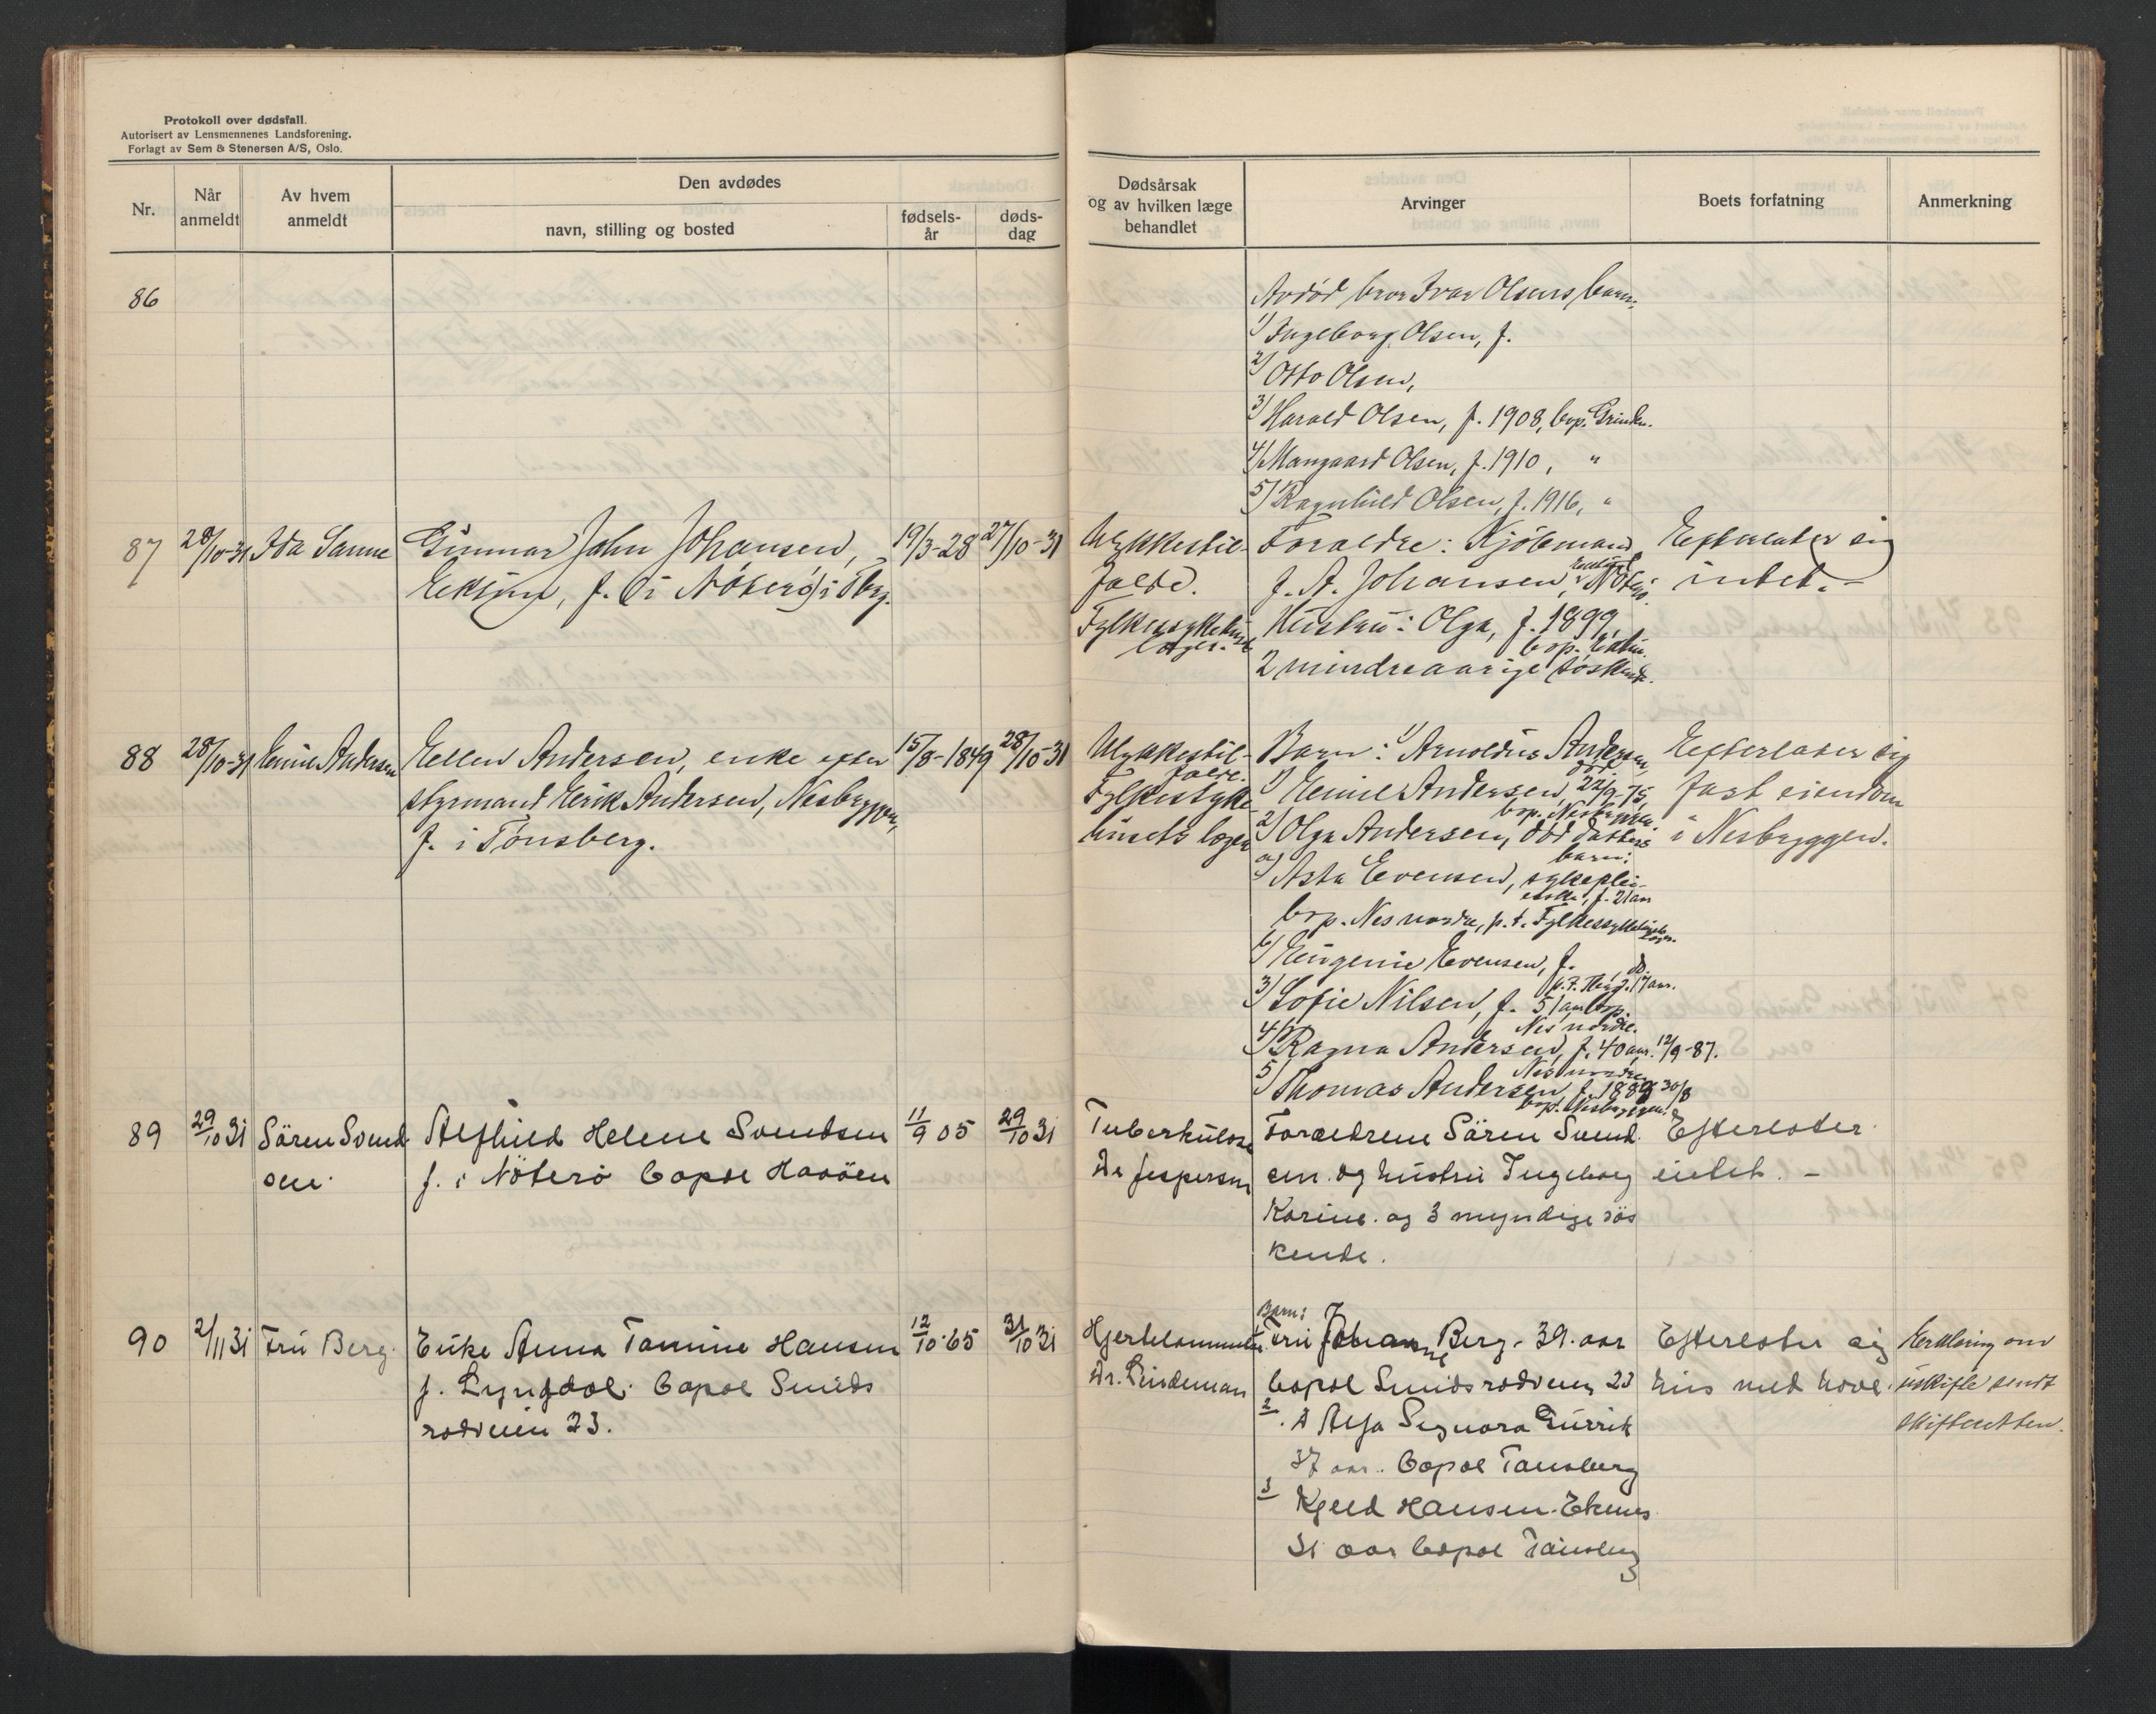 Protokoll over dødsfall.
Autorisert av Lensmennenes Landsforening.
Forlagt av Sem & Stenersen A/S, Oslo.
Nr.
Når anmeldt
Av hvem anmeldt
Den avdødes
navn, stilling og bosted
fødsels-år
døds-dag
Dødsårsak og av hvilken læge behandlet
Arvinger
Boets forfatning
Anmerkning
86
Avdød bror Ivar Olsens barn:
1) Ingeborg Olsen, f.
2) Otto Olsen,
3) Harald Olsen, f. 1908, bop. Grinden.
4) Mangaard Olsen, f. 1910, "
5) Ragnhild Olsen, f. 1916, "
87
28/10-31
Ida Sanne
Gunnar John Johansen,
f. (i Nøterø) i Tbrg.
19/3-28
27/10-31
Ulykkestil-
felde.
Fylkessykehusets
læger.
Foraldre: Kjøbmand
J. A. Johansen, Nøterø.
Hustru: Olga, f. 1899,
bop.
2 mindreaarige søskende.
Efterlater sig
intet. -
88
28/10-31
Emil Andersen
Ellen Andersen, enke efter
styrmand Erik Andersen, Nesbryggen,
f. i Tønsberg.
15/8-1849
28/10-31
Ulykkestil-
felde.
Fylkessyke
husets læger
Barn: 1) Arnoldus Andersen,
død.
1) Emil Andersen, 22/9-75,
bop. Nesbryggen.
2) Olga Andersen, død datters
barn:
a) Asta Evensen, sykeplei-
erske, f. 21 aar
bop. Nes nordre, p.t. Fylkessykehusets
læger.
b) Eugenie Evensen, f. do.
p.t. Tbrg. 17 aar.
3) Sofie Nilsen, f. 51 aar bop.
Nes nordre.
4) Ragna Andersen, f. 40 aar. 12/9-87.
Nes nordre
5) Thomas Andersen f. 1889 30/8
bop. Nesbryggen.
Efterlater sig
fast eiendom
i Nesbryggen.
89
29/10 31
Sören Svend
sen.
Alfhild Helene Svendsen
f. i Nöterö bopæl Havöen
11/9 05
29/10 31
Tuberkulose
Dr Jespersen
Foraldrene Sören Svend
sen. og hustru Ingeborg
Karine. og 3 myndige sös
kende.
Efterlater
intet. -
90
2/11 31
Fru Berg.
Enke Anna Tomine Hansen
f. Lyngdal. bopæl Smids
rødveien 23.
12/10-65
31/10 31
Hjertelammelse
Dr. Lindeman
Barn:
Fru Johanne Berg. 39. aar
bopæl Smidsrødveien 23
2. Alfa Signora
37 aar. bopæl Tønsberg
3 Kjell Hansen-Ekenes
31 aar bopæl Tønsberg
Efterlater sig
hus med have.
Erklæring om
uskifte sendt
skifteretten.